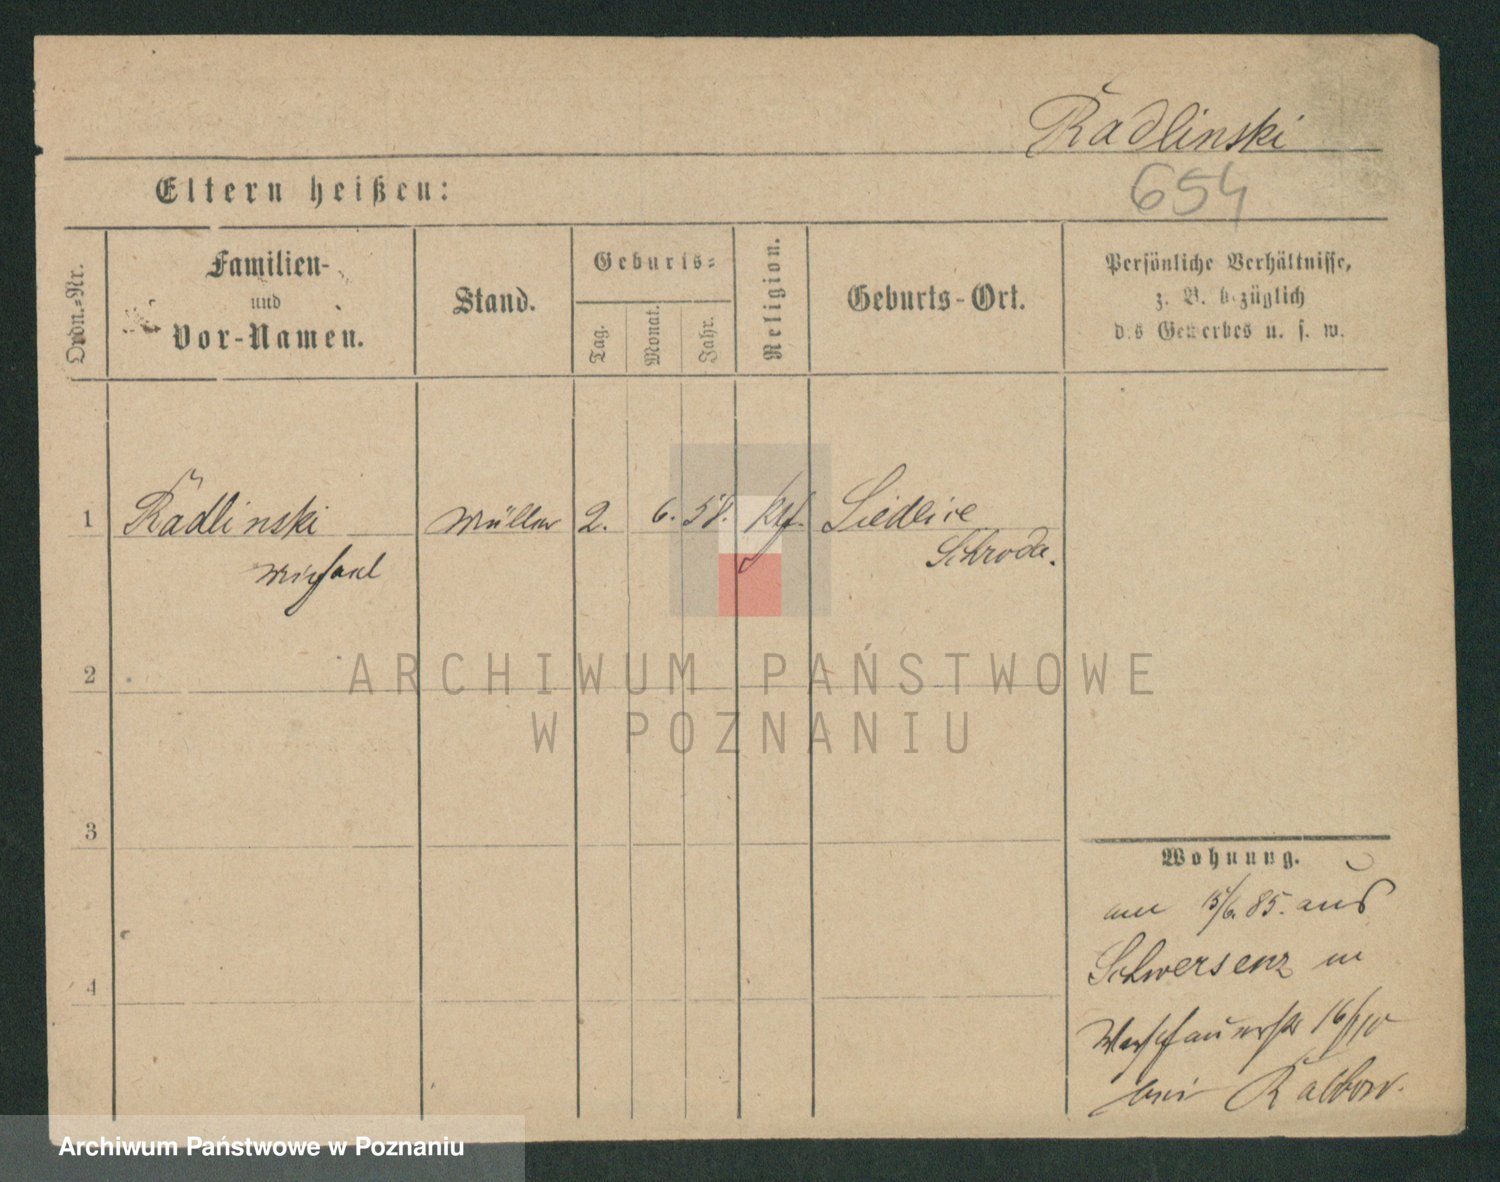 Radlinski
654
Eltern heißen:
Ordn.-Nr.
Familien-
und
Vor-Namen.
Stand.
Geburts-
Tag.
Monat.
Jahr.
Religion.
Geburts-Ort.
Persönliche Verhältnisse,
z. B. bezüglich
des Gewerbes u. s. w.
1
Radlinski
Michael
Müller
2.
6.
58.
kth.
Siedlice
Schroda.
ARCHIWUM PAŃSTWOWE
W POZNANIU
2
3
4
Wohnung.
am 15/6. 85. aus
Schwersenz in
16/
bei
Archiwum Państwowe w Poznaniu